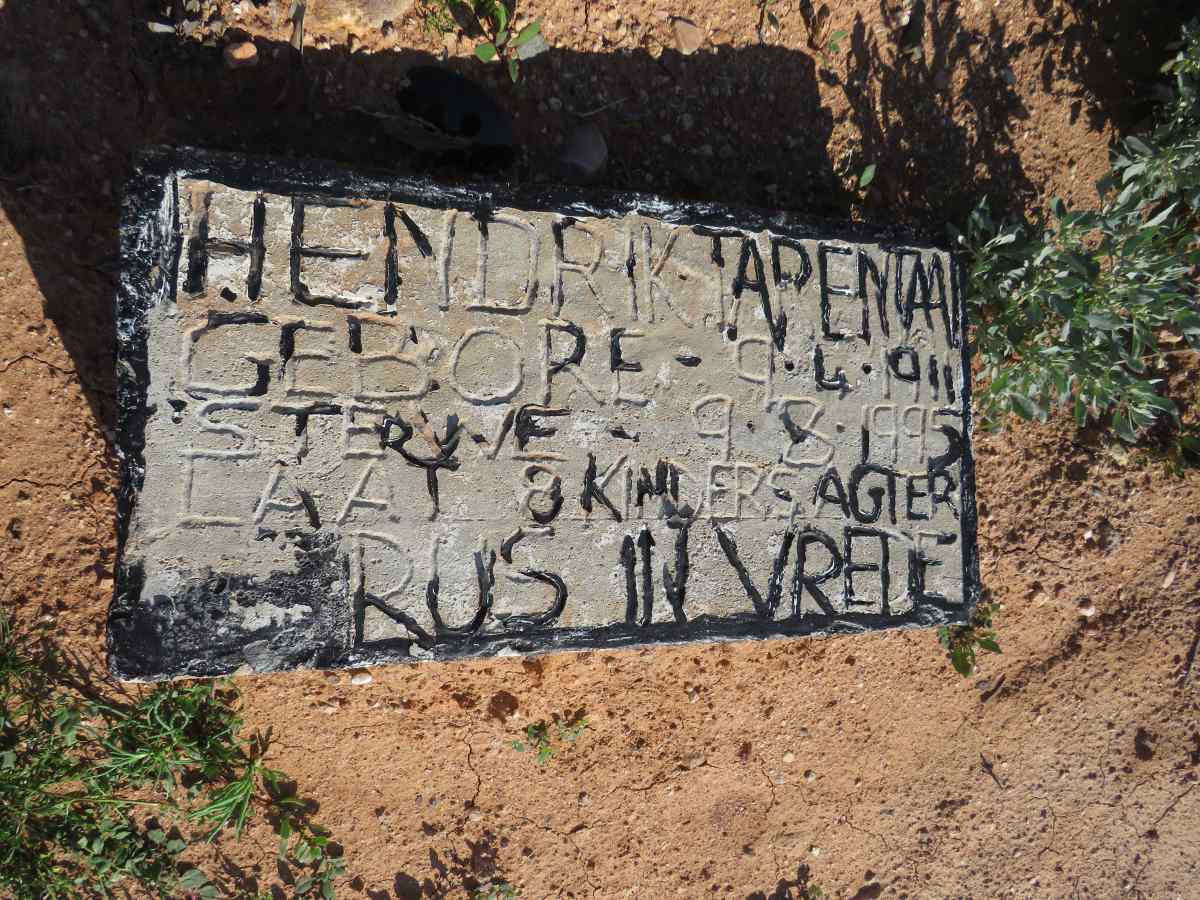 HENDRIK TARENTAAL
GEBORE - 9.4.1911
STERWE - 9.3.1995
LAAT 8 KINDERS AGTER
RUS IN VREDE